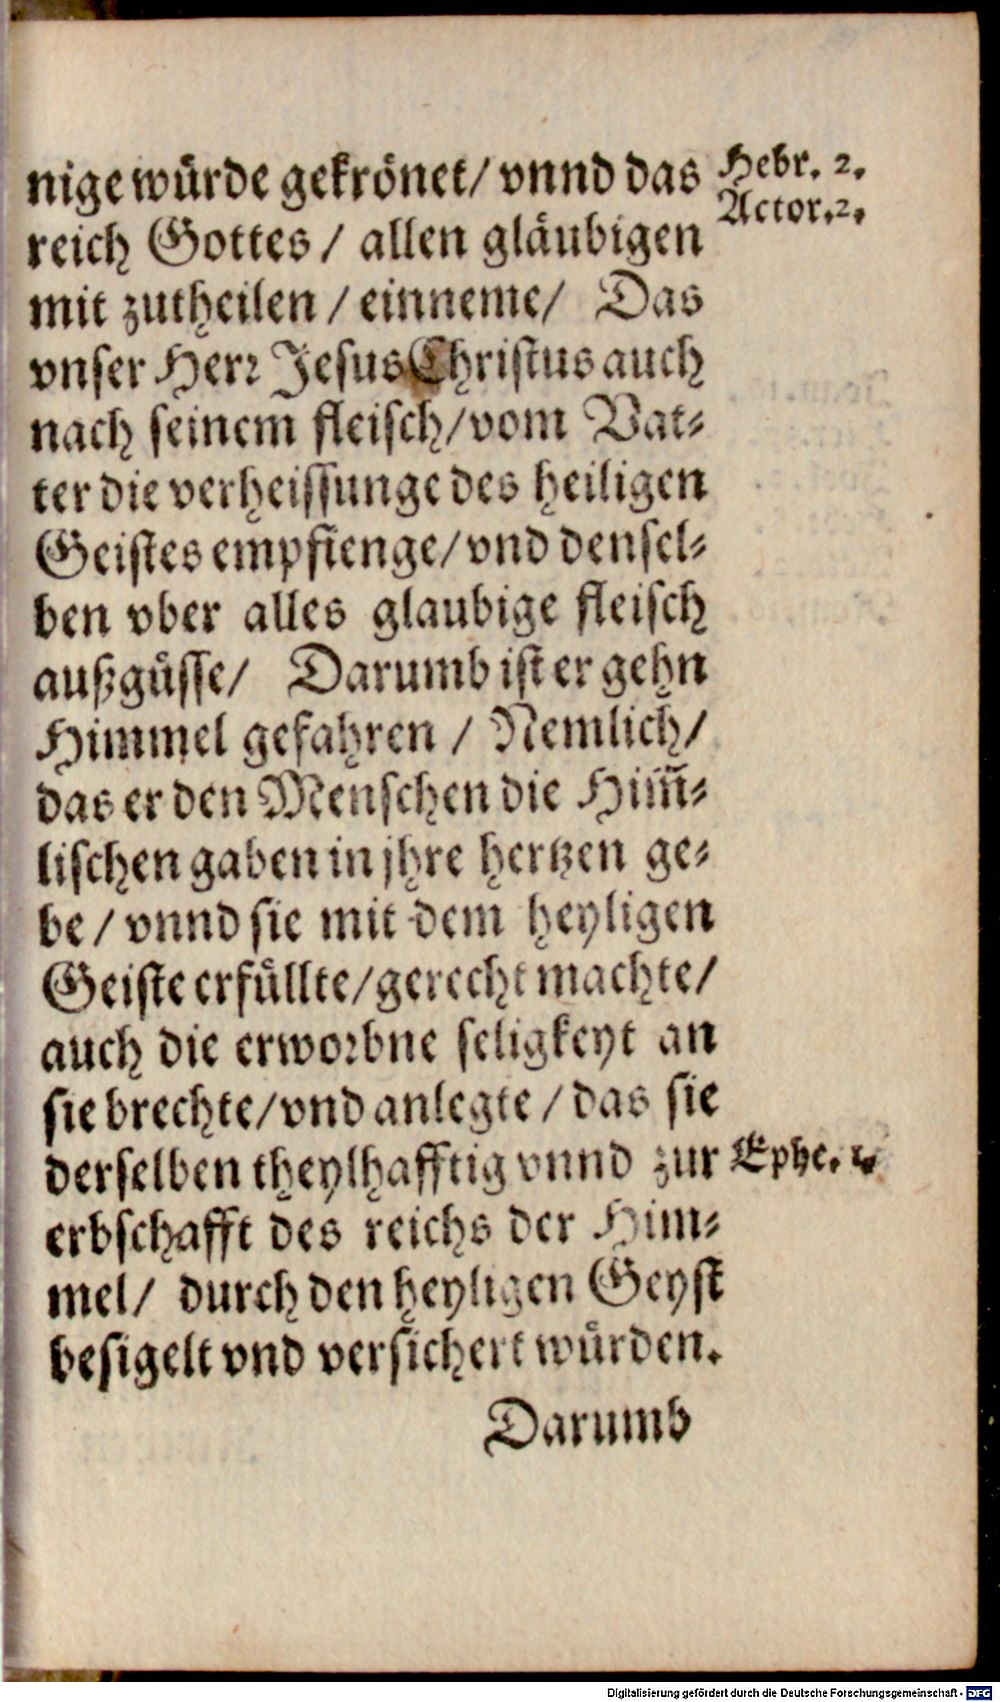 nige würde gekrönet/ vnnd das
Hebr. 2.
Actor. 2.
reich Gottes / allen gläubigen
mit zutheilen / einneme/ Das
vnser Herr Jesus Christus auch
nach seinem fleisch/ vom Vat-
ter die verheissunge des heiligen
Geistes empfienge/ vnd densel-
ben vber alles glaubige fleisch
außgüsse/ Darumb ist er gehn
Himmel gefahren / Nemlich/
das er den Menschen die Him̃-
lischen gaben in jhre hertzen ge-
be / vnnd sie mit dem heyligen
Geiste erfüllte/ gerecht machte/
auch die erworbne seligkeyt an
sie brechte/ vnd anlegte / das sie
derselben theylhafftig vnnd zur
Ephe. 1.
erbschafft des reichs der Him-
mel/ durch den heyligen Geyst
besigelt vnd versichert würden.
Darumb
Digitalisierung gefördert durch die Deutsche Forschungsgemeinschaft - DFG